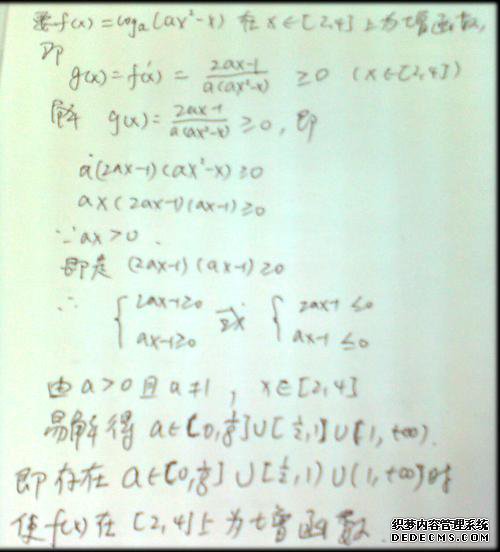 要f(x)=loga(ax²-x) 在 x∈[2,4] 上为增函数,
即
g(x)=f'(x) = (2ax-1)/(a(ax²-x)) ≥0 (x∈[2,4])
解 g(x)= (2ax-1)/(a(ax²-x)) ≥0, 即
a(2ax-1)(ax²-x)≥0
ax(2ax-1)(ax-1)≥0
∵ax>0.
即是 (2ax-1)(ax-1)≥0
∴ { 2ax-1≥0 或 { 2ax-1≤0
ax-1≥0 ax-1≤0
由 a>0 且 a≠1, x∈[2,4]
易解得 a∈[0,1/8]∪[1/2,1]∪[1,+∞).
即存在 a∈[0,1/8]∪[1/2,1)∪(1,+∞)时
使f(x)在[2,4]上为增函数.
织梦内容管理系统
DEDECMS.COM